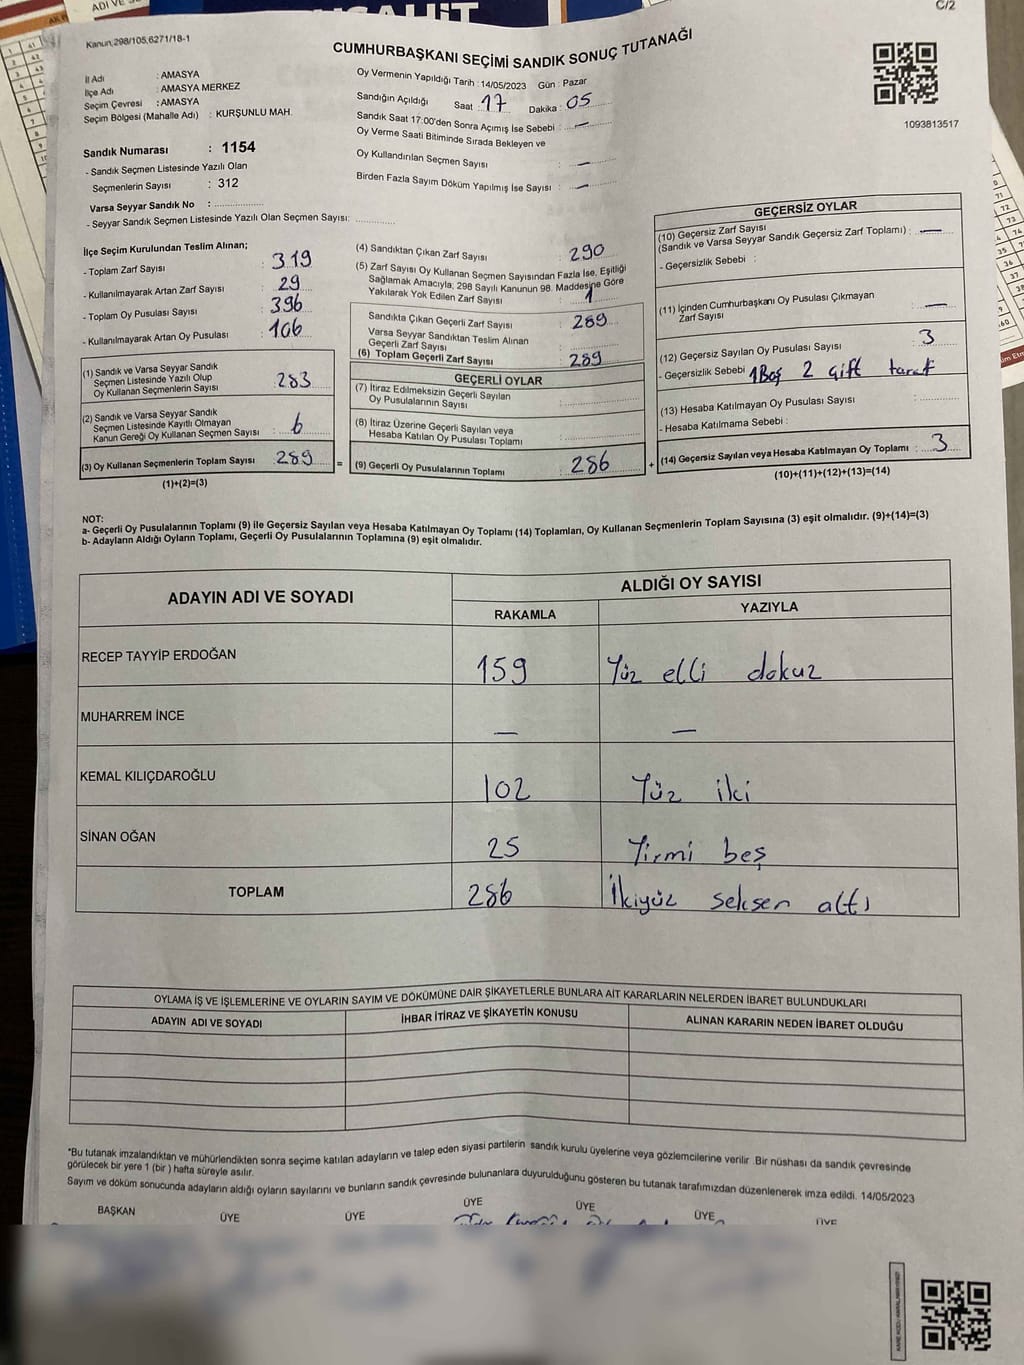 C/2
Kanun,298/105,6271/18-1
CUMHURBAŞKANI SEÇİMİ SANDIK SONUÇ TUTANAĞI
İl Adı : AMASYA
İlçe Adı : AMASYA MERKEZ
Seçim Çevresi : AMASYA
Seçim Bölgesi (Mahalle Adı) : KURŞUNLU MAH.
Oy Vermenin Yapıldığı Tarih : 14/05/2023 Gün : Pazar
Sandığın Açıldığı Saat : 17 Dakika : 05
Sandık Saat 17:00'den Sonra Açımış İse Sebebi : —
Oy Verme Saati Bitiminde Sırada Bekleyen ve
Oy Kullandırılan Seçmen Sayısı : —
Birden Fazla Sayım Döküm Yapılmış İse Sayısı : —
1093813517
Sandık Numarası : 1154
- Sandık Seçmen Listesinde Yazılı Olan
Seçmenlerin Sayısı : 312
Varsa Seyyar Sandık No :
- Seyyar Sandık Seçmen Listesinde Yazılı Olan Seçmen Sayısı:
İlçe Seçim Kurulundan Teslim Alınan;
- Toplam Zarf Sayısı : 319
- Kullanılmayarak Artan Zarf Sayısı : 29
- Toplam Oy Pusulası Sayısı : 396
- Kullanılmayarak Artan Oy Pusulası : 106
(1) Sandık ve Varsa Seyyar Sandık
Seçmen Listesinde Yazılı Olup
Oy Kullanan Seçmenlerin Sayısı : 283
(2) Sandık ve Varsa Seyyar Sandık
Seçmen Listesinde Kayıtlı Olmayan
Kanun Gereği Oy Kullanan Seçmen Sayısı : 6
(3) Oy Kullanan Seçmenlerin Toplam Sayısı : 289
(1)+(2)=(3)
(4) Sandıktan Çıkan Zarf Sayısı : 290
(5) Zarf Sayısı Oy Kullanan Seçmen Sayısından Fazla İse, Eşitliği
Sağlamak Amacıyla; 298 Sayılı Kanunun 98. Maddesine Göre
Yakılarak Yok Edilen Zarf Sayısı : 1
Sandıkta Çıkan Geçerli Zarf Sayısı : 289
Varsa Seyyar Sandıktan Teslim Alınan
Geçerli Zarf Sayısı :
(6) Toplam Geçerli Zarf Sayısı : 289
GEÇERLİ OYLAR
(7) İtiraz Edilmeksizin Geçerli Sayılan
Oy Pusulalarının Sayısı :
(8) İtiraz Üzerine Geçerli Sayılan veya
Hesaba Katılan Oy Pusulası Toplamı :
= (9) Geçerli Oy Pusulalarının Toplamı : 286 +
GEÇERSİZ OYLAR
(10) Geçersiz Zarf Sayısı
(Sandık ve Varsa Seyyar Sandık Geçersiz Zarf Toplamı) : —
- Geçersizlik Sebebi :
(11) İçinden Cumhurbaşkanı Oy Pusulası Çıkmayan
Zarf Sayısı : —
(12) Geçersiz Sayılan Oy Pusulası Sayısı : 3
- Geçersizlik Sebebi 1 Boş 2 çift taraf
(13) Hesaba Katılmayan Oy Pusulası Sayısı :
- Hesaba Katılmama Sebebi :
(14) Geçersiz Sayılan veya Hesaba Katılmayan Oy Toplamı : 3
(10)+(11)+(12)+(13)=(14)
NOT:
a- Geçerli Oy Pusulalarının Toplamı (9) ile Geçersiz Sayılan veya Hesaba Katılmayan Oy Toplamı (14) Toplamları, Oy Kullanan Seçmenlerin Toplam Sayısına (3) eşit olmalıdır. (9)+(14)=(3)
b- Adayların Aldığı Oyların Toplamı, Geçerli Oy Pusulalarının Toplamına (9) eşit olmalıdır.
ADAYIN ADI VE SOYADI
ALDIĞI OY SAYISI
RAKAMLA YAZIYLA
RECEP TAYYİP ERDOĞAN 159 Yüz elli dokuz
MUHARREM İNCE — —
KEMAL KILIÇDAROĞLU 102 Yüz iki
SİNAN OĞAN 25 Yirmi beş
TOPLAM 286 İkiyüz seksen altı
OYLAMA İŞ VE İŞLEMLERİNE VE OYLARIN SAYIM VE DÖKÜMÜNE DAİR ŞİKAYETLERLE BUNLARA AİT KARARLARIN NELERDEN İBARET BULUNDUKLARI
ADAYIN ADI VE SOYADI İHBAR İTİRAZ VE ŞİKAYETİN KONUSU ALINAN KARARIN NEDEN İBARET OLDUĞU
*Bu tutanak imzalandıktan ve mühürlendikten sonra seçime katılan adayların ve talep eden siyasi partilerin sandık kurulu üyelerine veya gözlemcilerine verilir. Bir nüshası da sandık çevresinde
görülecek bir yere 1 (bir ) hafta süreyle asılır.
Sayım ve döküm sonucunda adayların aldığı oyların sayılarını ve bunların sandık çevresinde bulunanlara duyurulduğunu gösteren bu tutanak tarafımızdan düzenlenerek imza edildi. 14/05/2023
BAŞKAN ÜYE ÜYE ÜYE ÜYE ÜYE